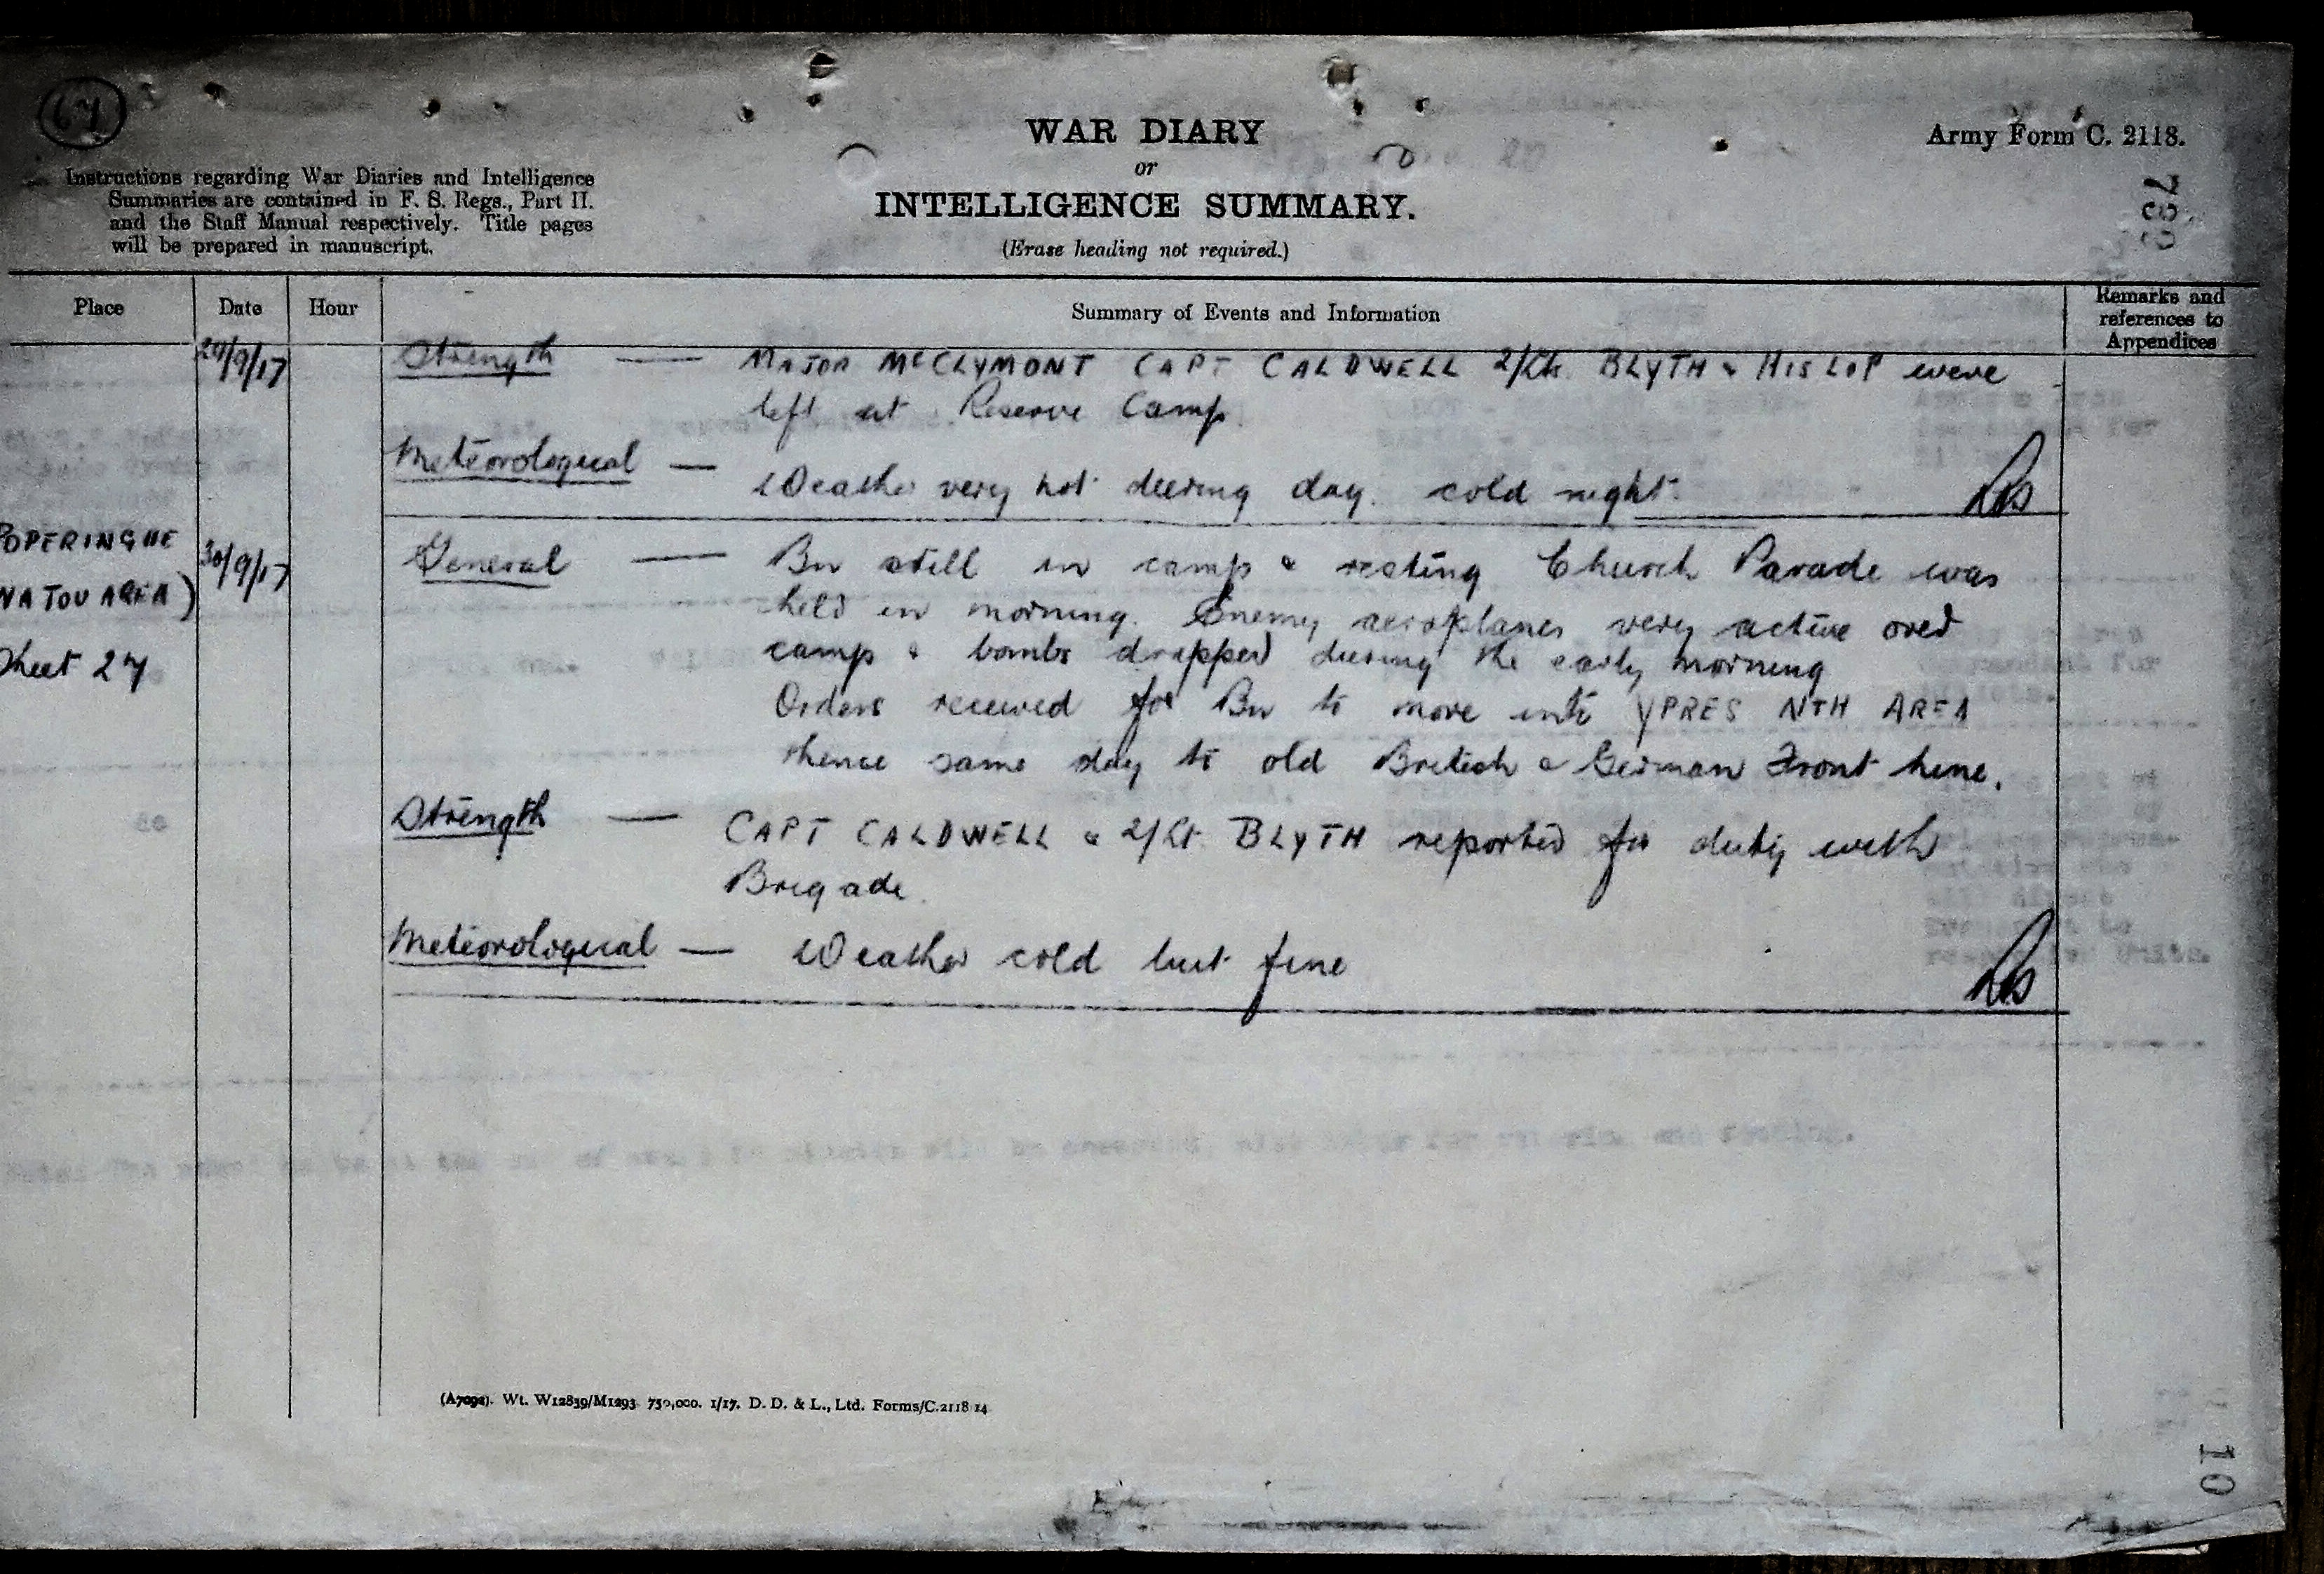 67
WAR DIARY
or
INTELLIGENCE SUMMARY.
(Erase heading not required.)
Army Form C. 2118.
Instructions regarding War Diaries and Intelligence
Summaries are contained in F. S. Regs., Part II.
and the Staff Manual respectively. Title pages
will be prepared in manuscript.
Place
Date
Hour
Summary of Events and Information
Remarks and
references to
Appendices
29/9/17
Strength — MAJOR McCLYMONT CAPT CALDWELL 2/Lts. BLYTH & HISLOP were
left at Reserve Camp.
Meteorological — Weather very hot during day. cold night.
POPERINGHE
WATOU AREA)
Sheet 27
30/9/17
General — Bn still in camp & resting Church Parade was
held in morning. Enemy aeroplanes very active over
camp & bombs dropped during the early morning
Orders received for Bn to move into YPRES NTH AREA
thence same day to old British & German Front Line.
Strength — CAPT CALDWELL & 2/Lt. BLYTH reported for duty with
Brigade.
Meteorological — Weather cold but fine
(A7092). Wt. W12839/M1293 750,000. 1/17. D. D. & L., Ltd. Forms/C.2118/14
10